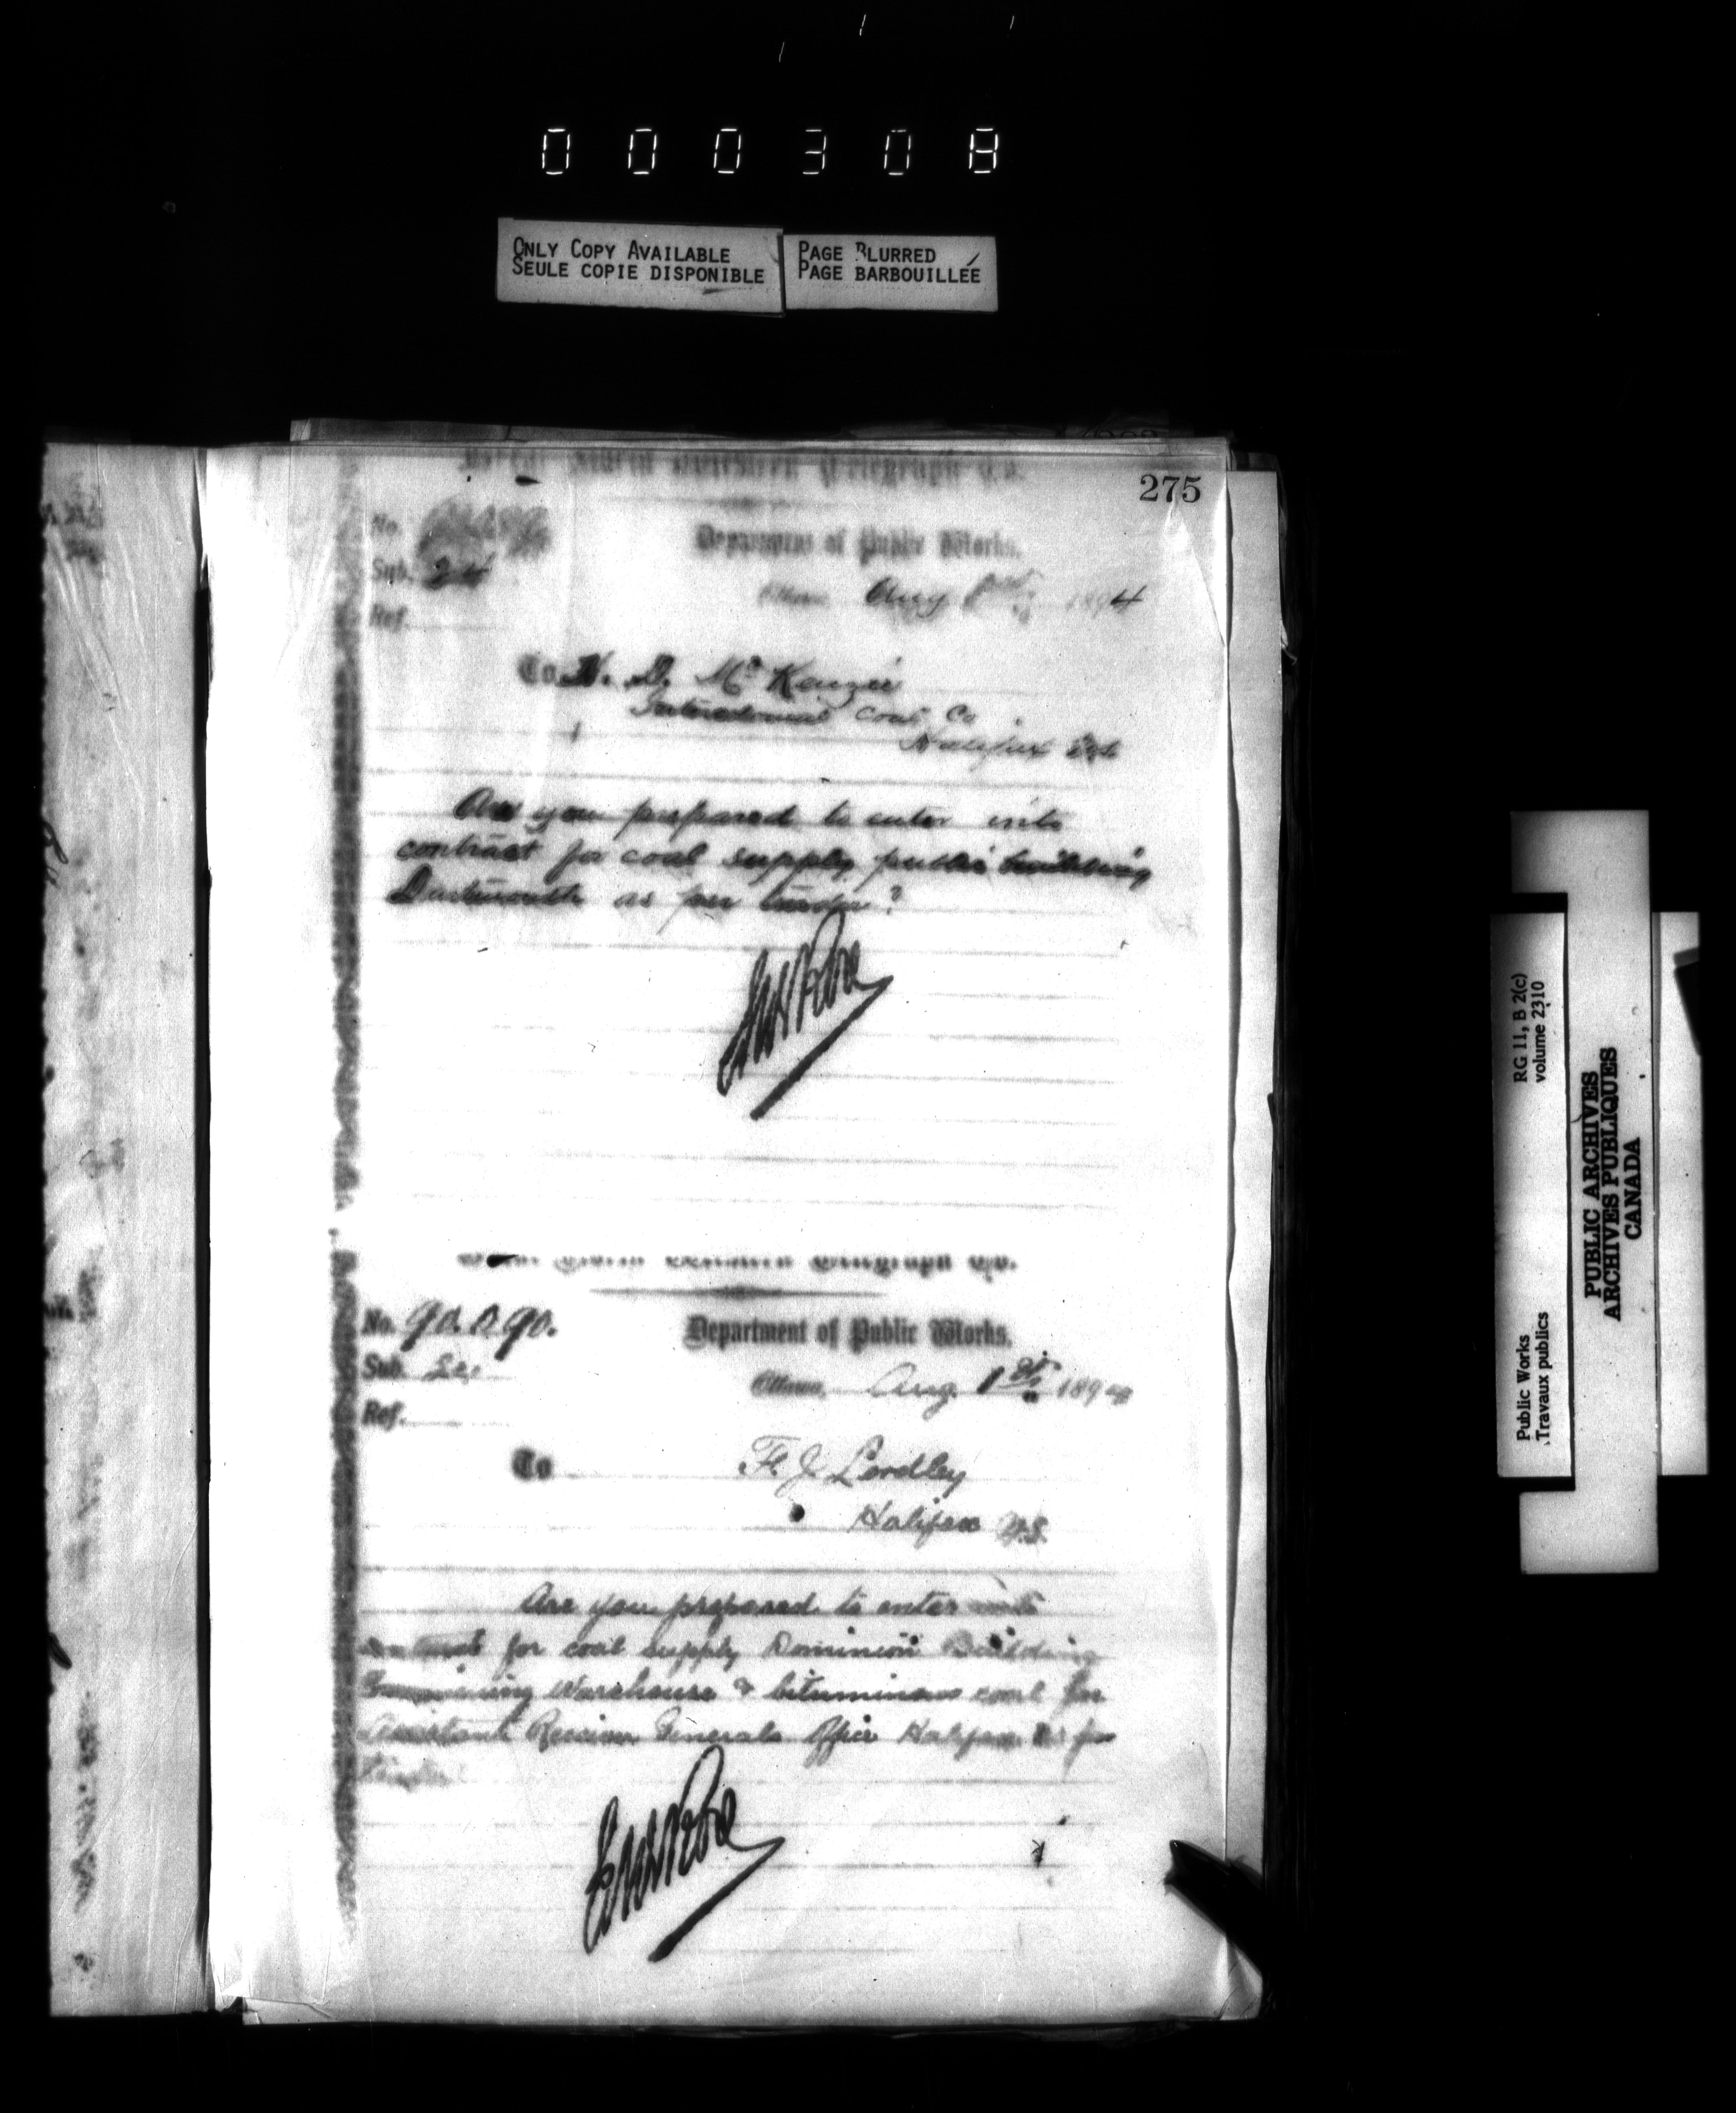 000308
ONLY COPY AVAILABLE
SEULE COPIE DISPONIBLE
PAGE BLURRED
PAGE BARBOUILLÉE
275
Telegraph Co.
No.
Department of Public Works.
Sub.
Ottawa Aug 1st 1894
Ref.
To H. D. McKenzie
Intercolonial Coal Co
Halifax
Are you prepared to enter into
contract for coal supply public building
Dartmouth as per tender?
Telegraph Co.
No. 90.090.
Department of Public Works.
Sub.
Ottawa, Aug. 1st 1894
Ref.
To F. J. Lordley
Halifax N.S.
Are you prepared to enter into
contract for coal supply Dominion Building
Examining Warehouse & bituminous coal for
Assistant Receiver Generals Office Halifax as per
tender
RG 11, B 2(c)
volume 2310
Public Works
Travaux publics
PUBLIC ARCHIVES
ARCHIVES PUBLIQUES
CANADA